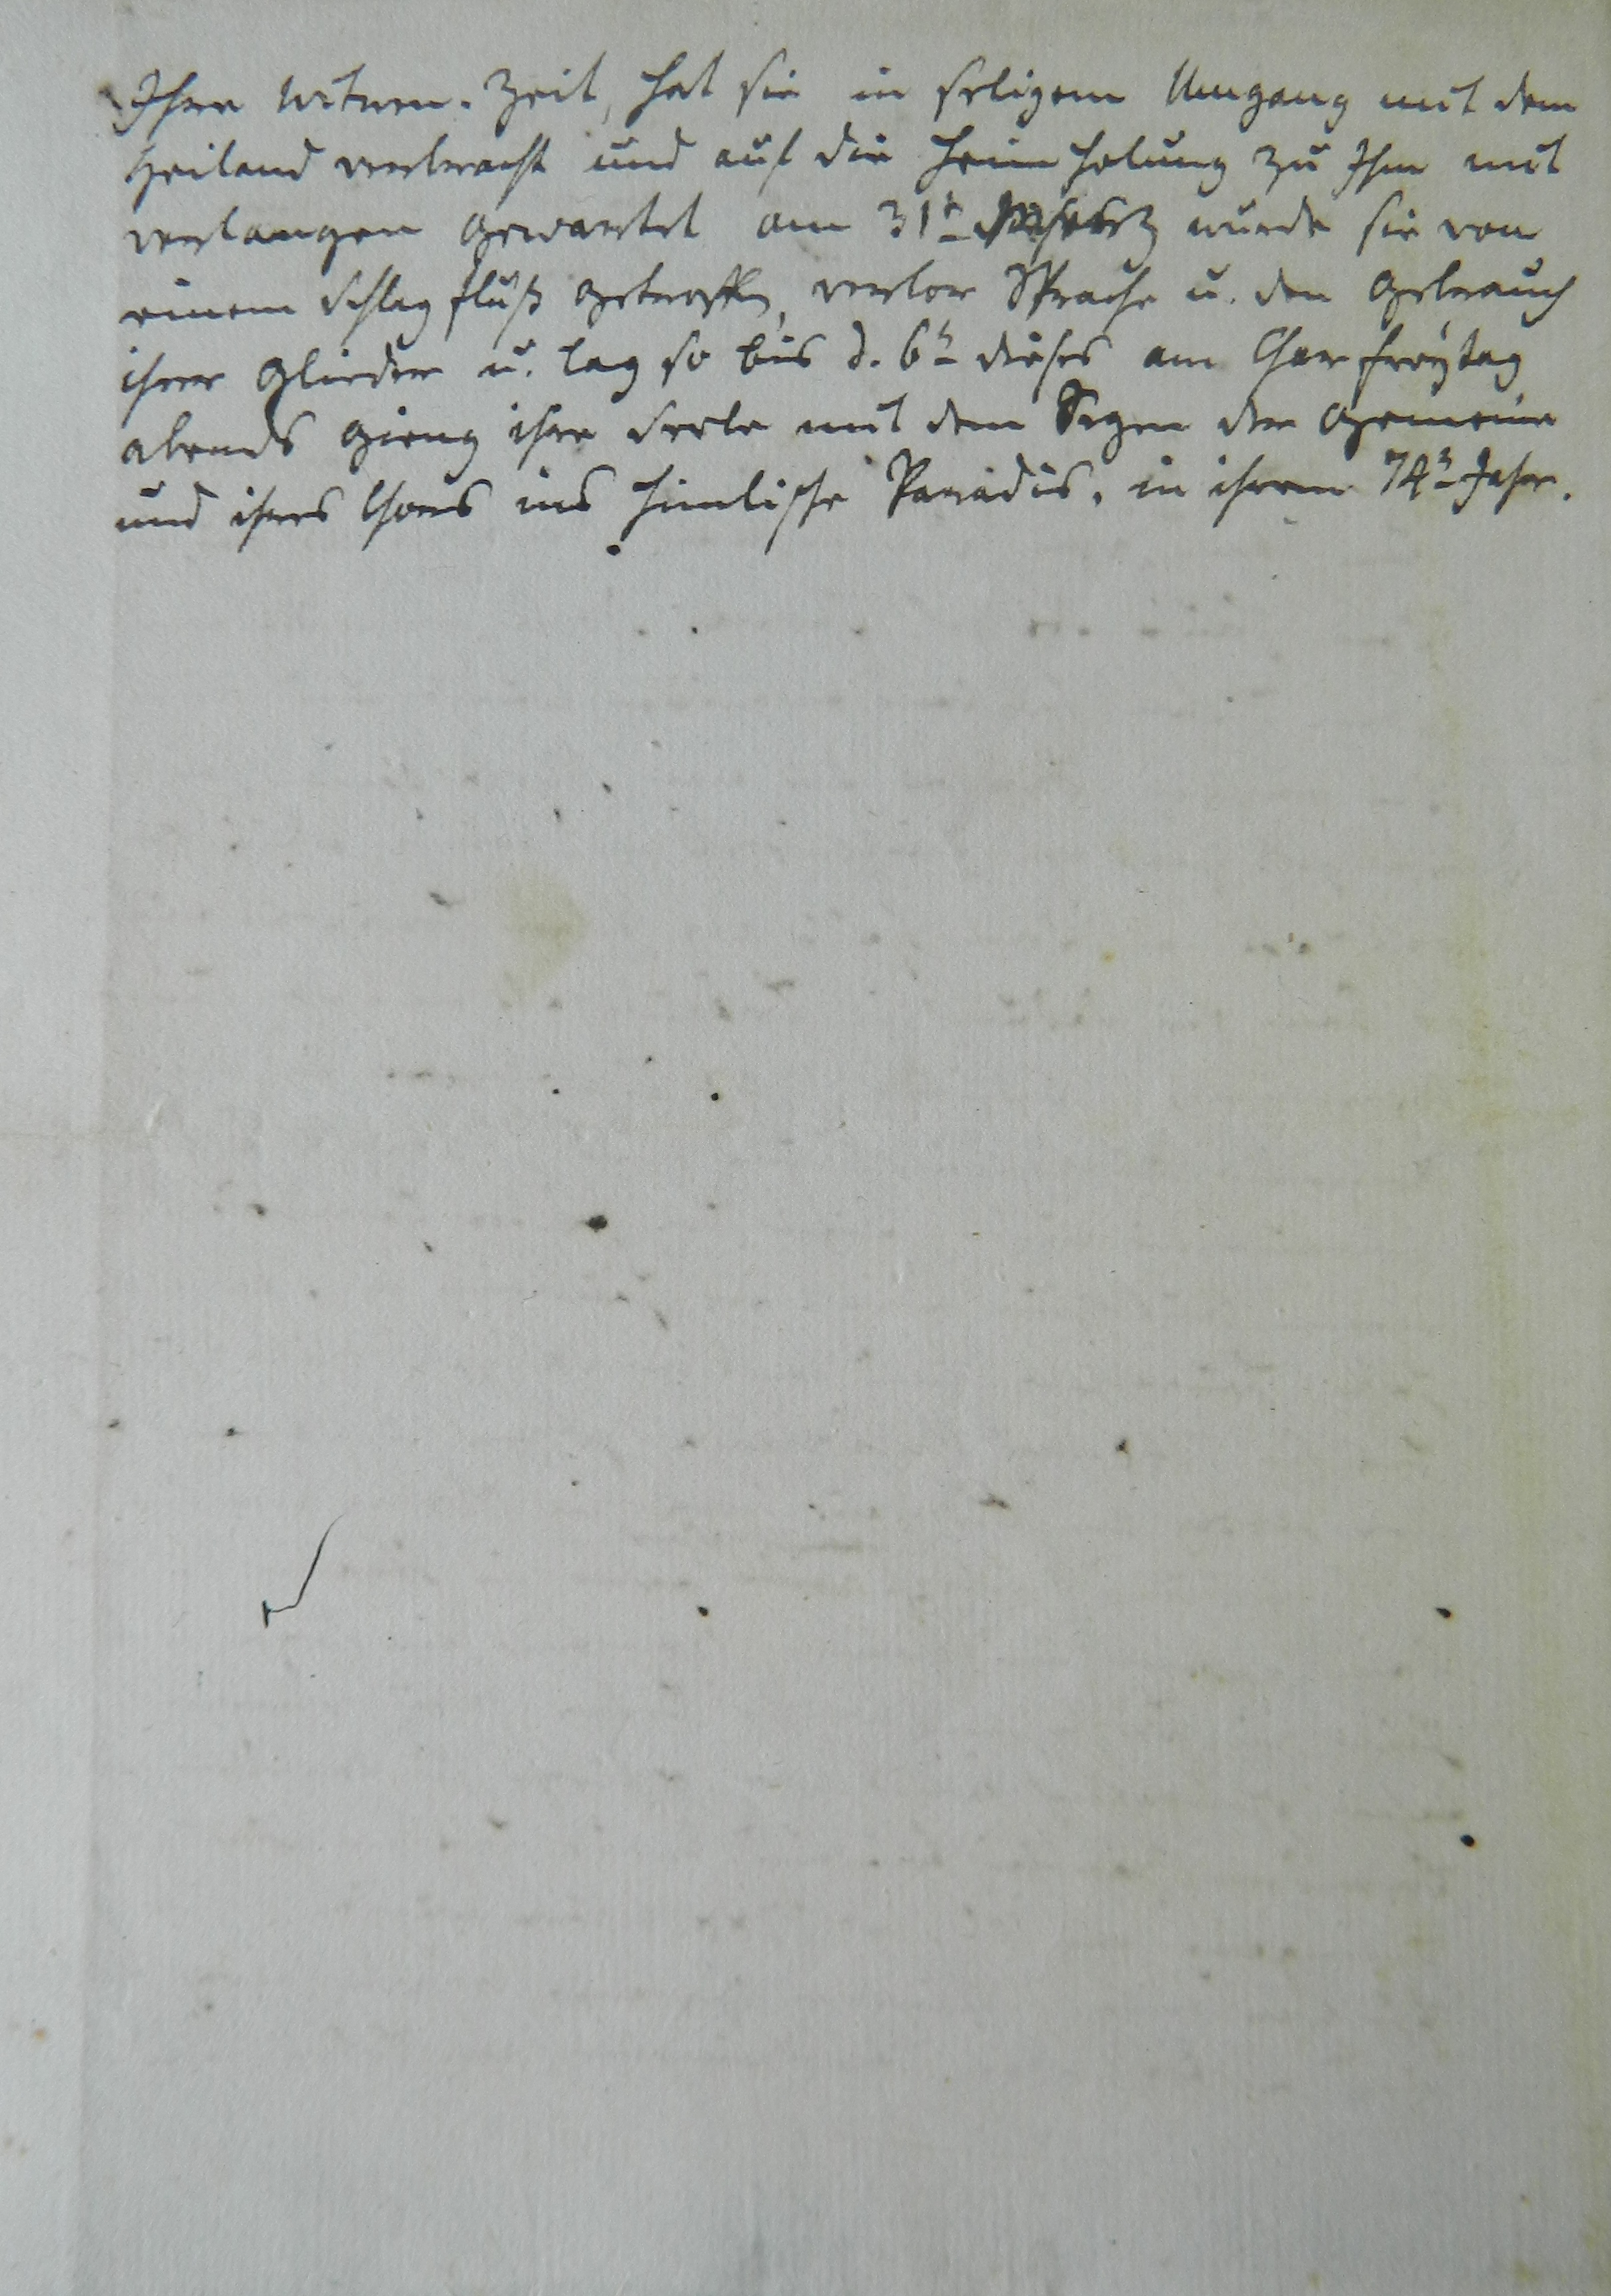 Ihre Witwen-Zeit, hat sie in seligem Umgang mit dem
Heiland verbracht und auf die Heimholung zu Ihm mit
verlangen gewartet am 31t wurde sie von
einem Schlagfluß getroffen, verlor Sprache u. den Gebrauch
ihrer Glieder u. lag so bis d. 6n dieses am Charfreÿtag
abends gieng ihre Seele mit dem Segen der Gemeine
und ihres Chors ins himlische Paradis, in ihrem 74n Jahr.